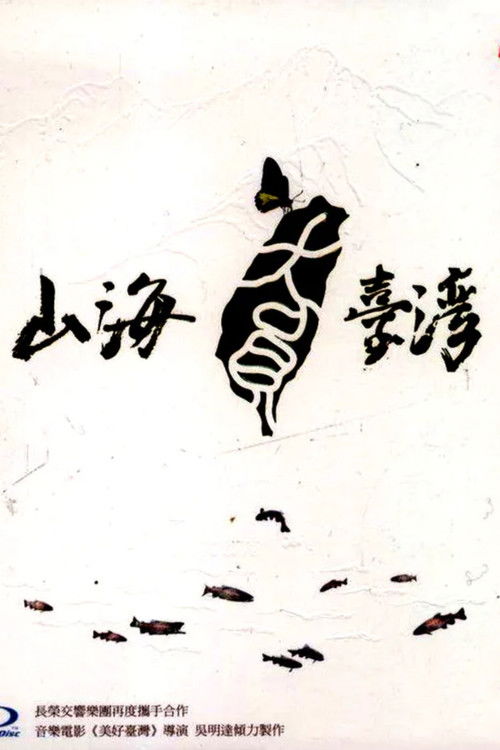 山海 臺灣
Disc
長榮交響樂團再度攜手合作
音樂電影《美好臺灣》導演 吳明達傾力製作